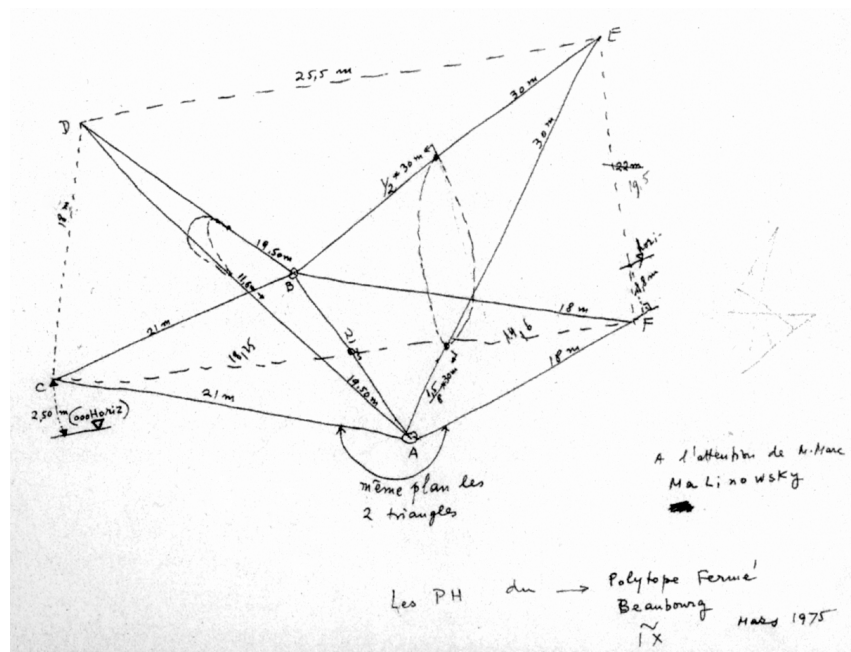 E
25,5 m
30 m
D
30 m
½ × 30 m
22 m
19,5
18 m
19,50 m
B
11,6m
18 m
F
21 m
21
14,6
18,25
18 m
C
21 m
19,50 m
2,50 m (000Horiz)
A
même plan les
2 triangles
A l'attention de M. Marc
MaLinowsky
Les PH du → Polytope Fermé
Beaubourg
Mars 1975